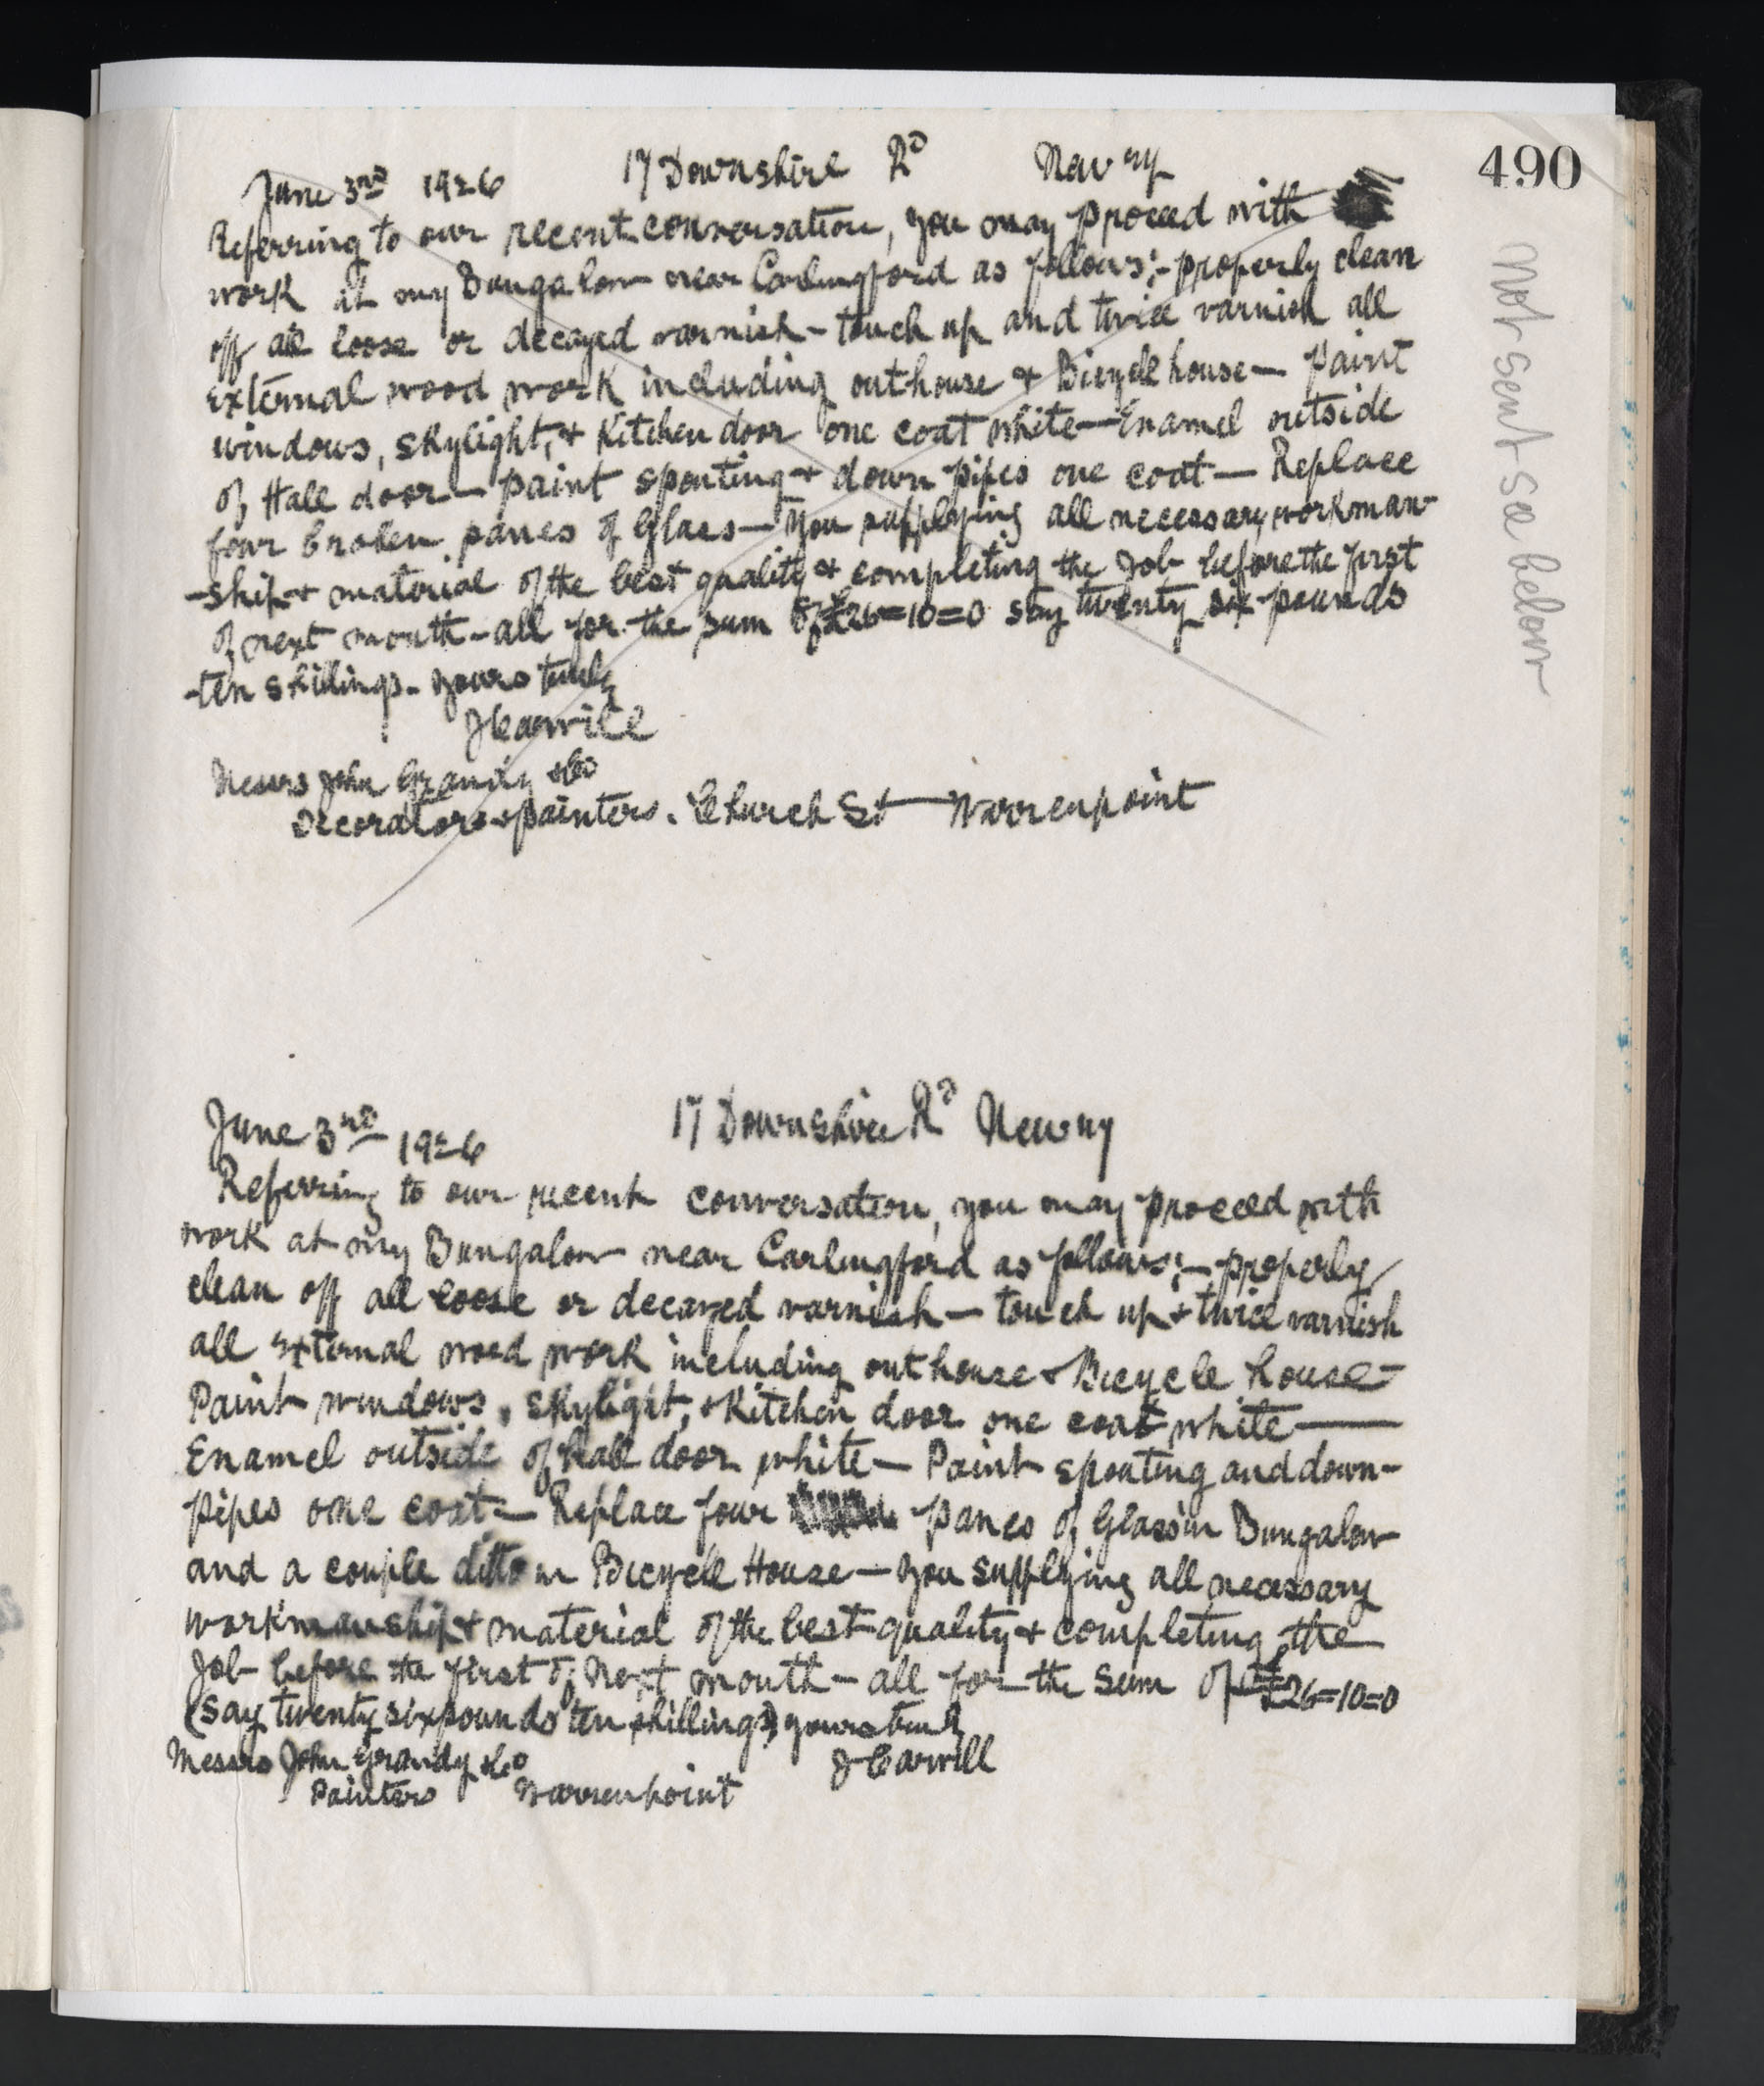 490
Not sent see below
June 3rd 1926 17 Downshire Rd Newry
Referring to our recent conversation, you may proceed with
work at my Bungalow near Carlingford as follows:- properly clean
off all loose or decayed varnish - touch up and twice varnish all
external wood work including outhouse & Bicycle house - Paint
windows, skylight, & Kitchen door one coat white - Enamel outside
of Hall door - paint spouting & down pipes one coat - Replace
four broken panes of Glass - You supplying all necessary workman
-ship & material of the best quality & completing the Job before the first
of next month - all for the sum of £26=10=0 say twenty six pounds
ten shillings. Yours truly
J Carvill
Messrs John Grandy & Co
Decorators & painters. Church St Warrenpoint
June 3rd 1926 17 Downshire Rd Newry
Referring to our recent conversation, you may proceed with
work at my Bungalow near Carlingford as follows:- properly
clean off all loose or decayed varnish - touch up & twice varnish
all external wood work including outhouse & Bicycle house -
Paint windows, skylight, & Kitchen door one coat white -
Enamel outside of hall door white - Paint spouting and down-
pipes one coat - Replace four panes of Glass in Bungalow
and a couple ditto in Bicycle House - You supplying all necessary
workmanship & material of the best quality & completing the
Job before the first of next month - all for the sum of £26=10=0
(say twenty six pounds ten shillings) yours truly
J Carvill
Messrs John Grandy & Co
Painters Warrenpoint